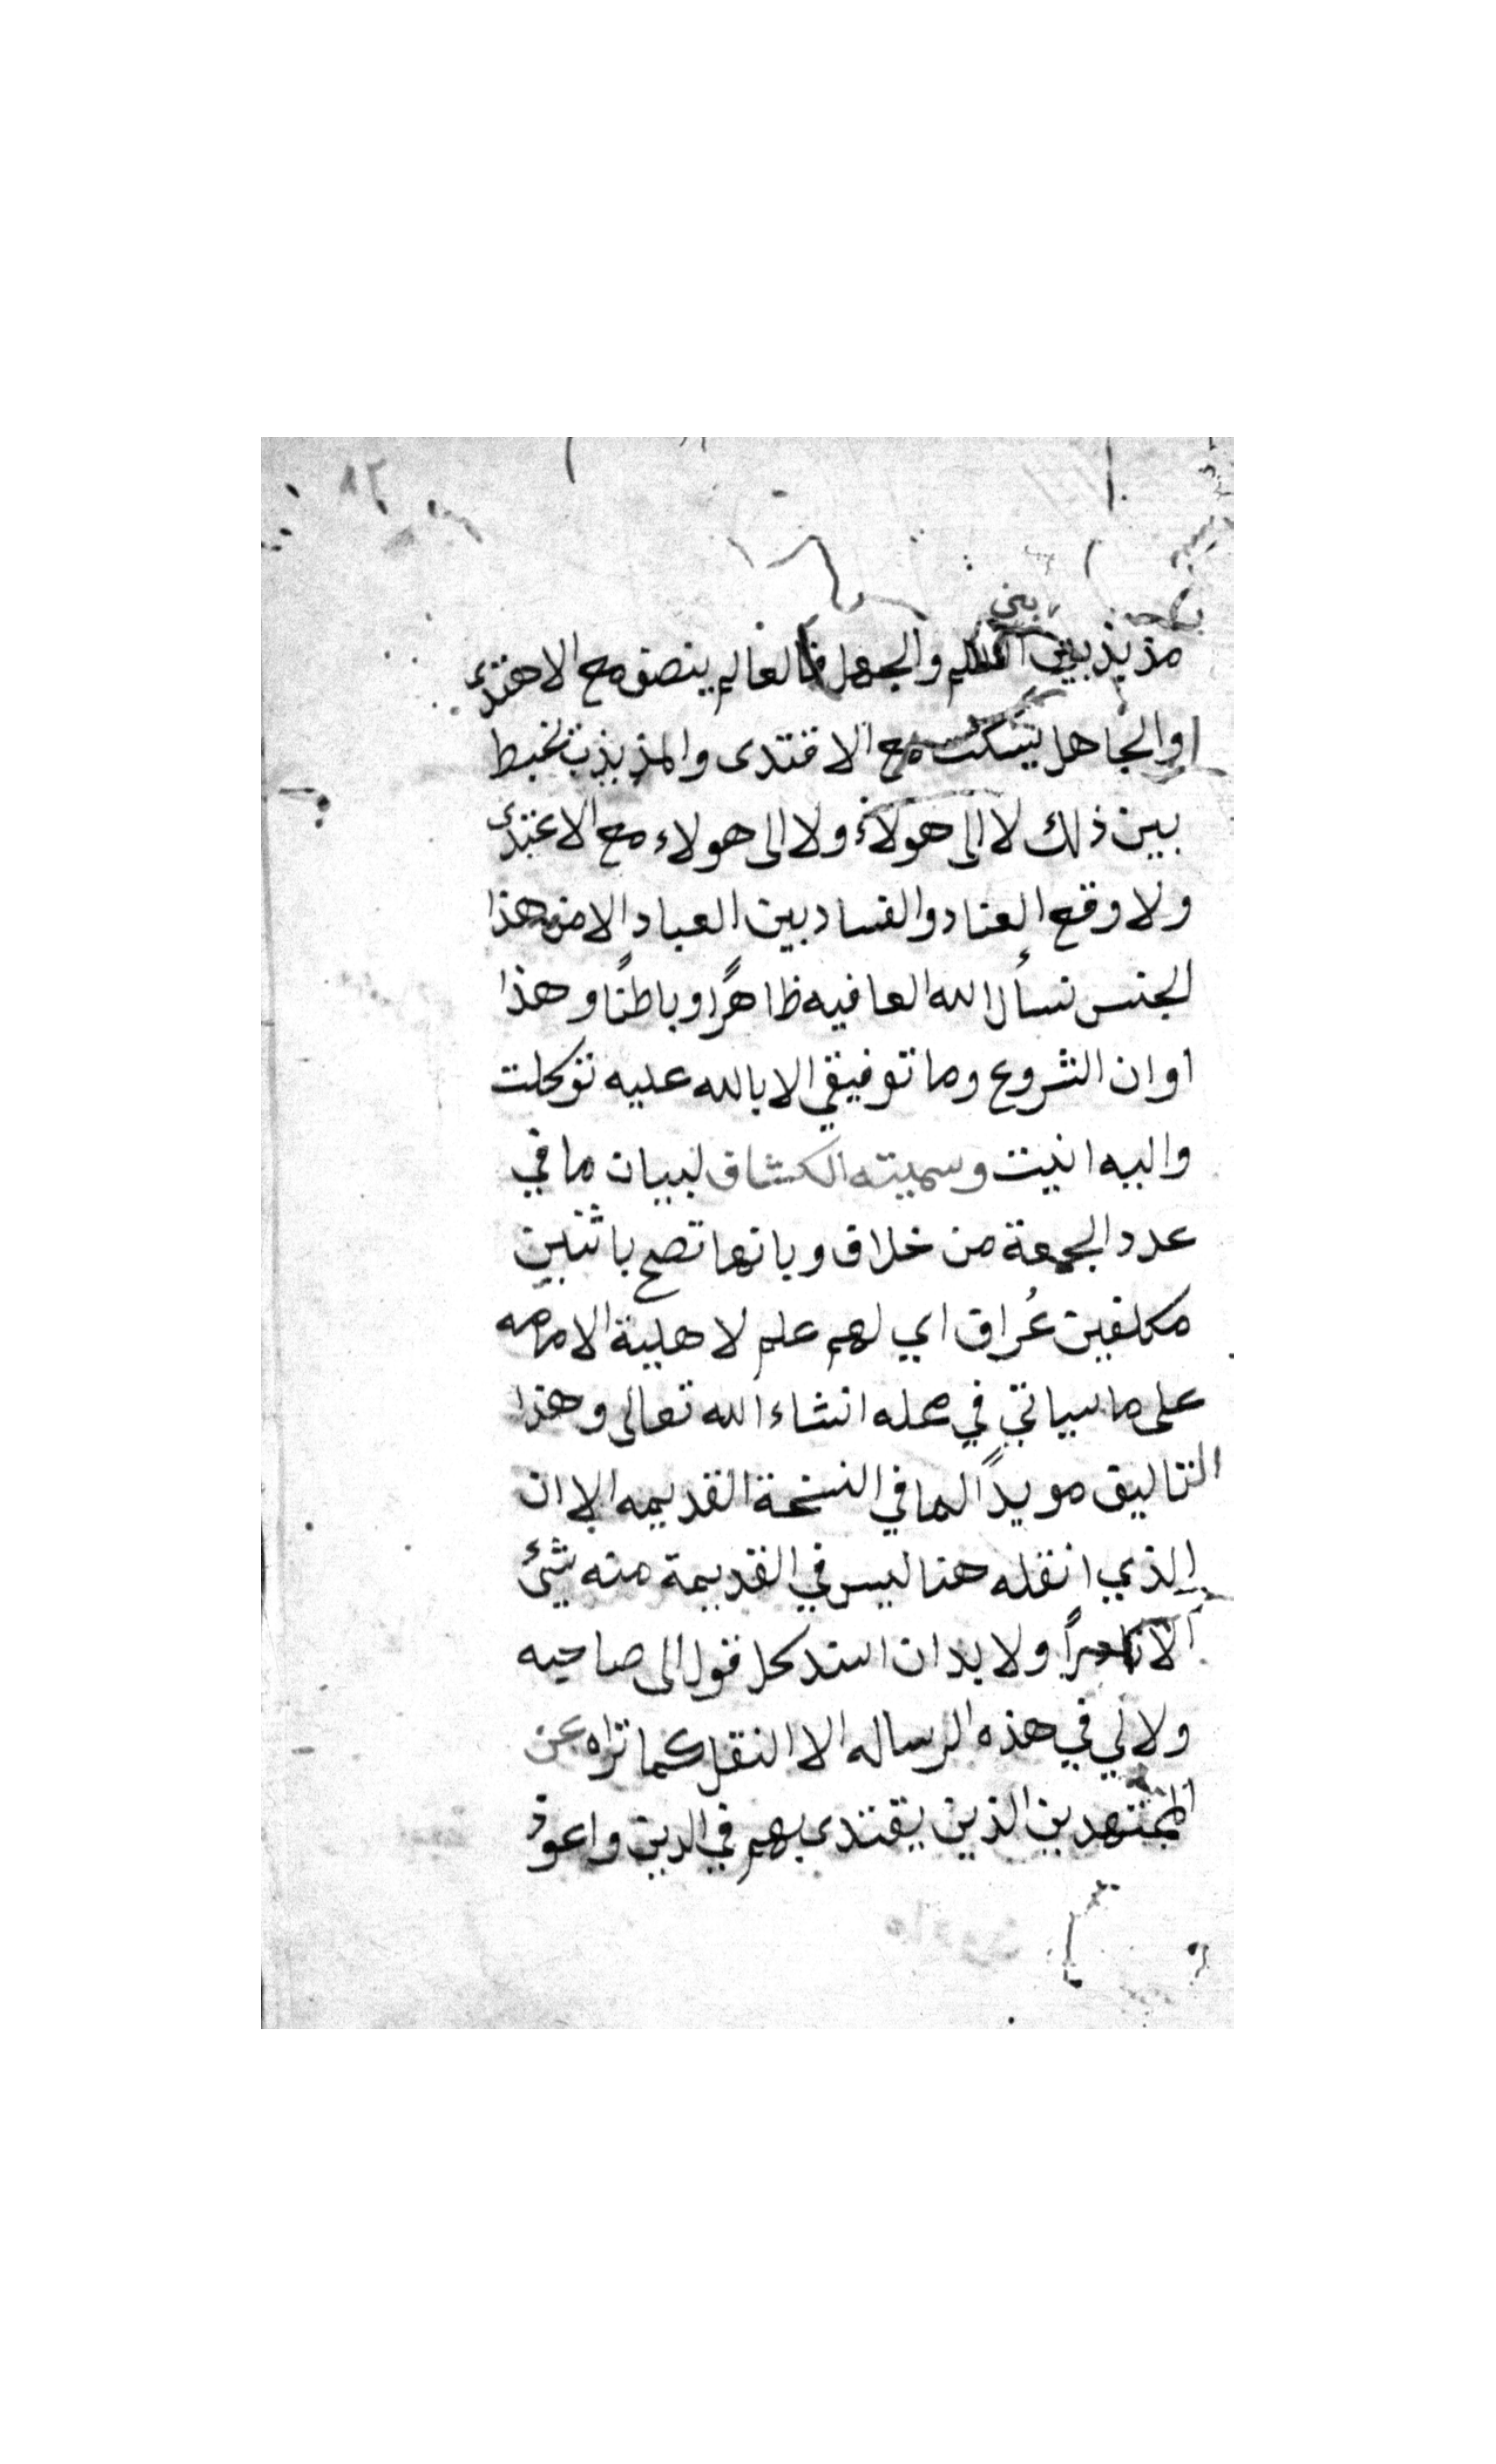 بين
مذبذبين العلم والجهل فالعالم ينصف مع الاهتدى
والجاهل يسكت مع الاقتدى والمذبذب تخبط
بين ذلك لا الى هولاء ولا الى هولاء مع الاعتدى
ولا وقع العناد والفساد بين العباد الا من هذا
الجنس نسأل الله العافيه ظاهرًا وباطنًا وهذا
اوان الشروع وما توفيقي الا بالله عليه توكلت
واليه انيب وسميته الكشاف لبيان ما في
عدد الجمعة من خلاف وبانها تصح باثنين
مكلفين عُراف اي لهم علم لاهلية الامامه
على ما سياتي في محله انشاء الله تعالى وهذا
التاليف مويدًا لما في النسخة القديمه الا ان
الذي انقله هنا ليس في القديمة منه شئ
الا نادرًا ولا بد ان اسند كل قول الى صاحبه
ولا لي في هذه الرساله الا النقل كما تراه عن
المجتهدين الذين يقتدى بهم في الدين واعوذ